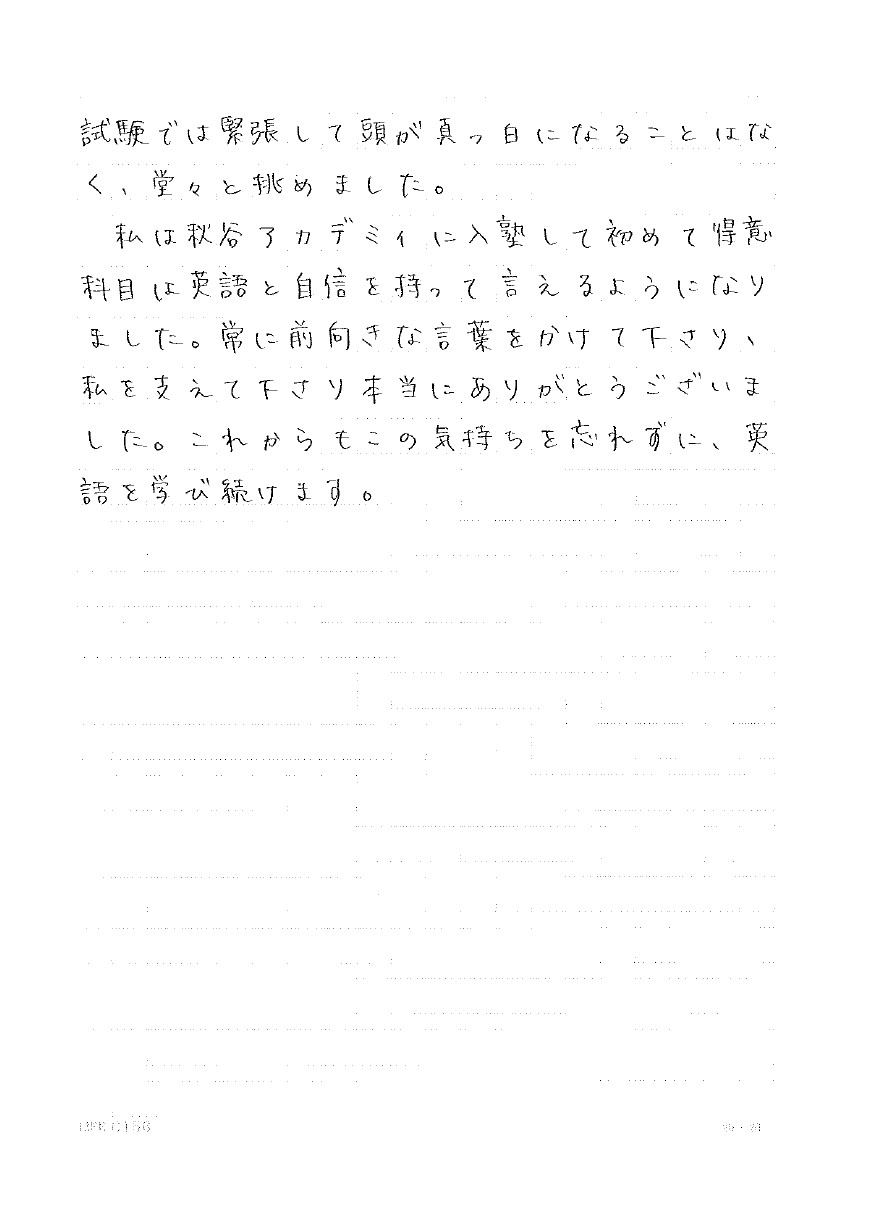 試験では緊張して頭が真っ白になることはな
く、堂々と挑めました。
私は秋谷アカデミィに入塾して初めて得意
科目は英語と自信を持って言えるようになり
ました。常に前向きな言葉をかけて下さり、
私を支えて下さり本当にありがとうございま
した。これからもこの気持ちを忘れずに、英
語を学び続けます。
LIFE C156